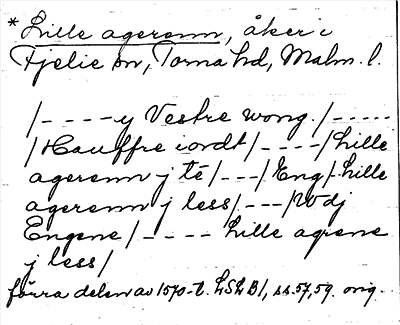 * Lille agerenn, åker i
Fjelie sn, Torna hd, Malm. l.
/----y Vestre wong./-----
/Hauffre iordt/----/Lille
agerenn j té/---/Eng/-Lille
agerenn j less/---/Wdj
Engene/---- Lille agrene
j less/
förra delen av 1570-t. LSLB1, ss.57,59. orig.